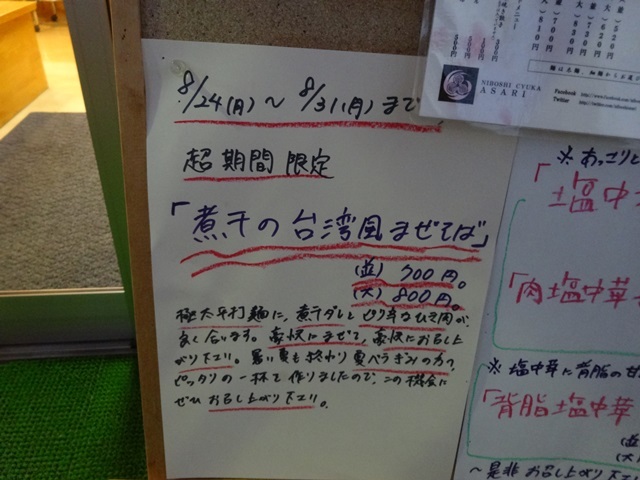 8/24(月)～8/31(月)まで
超期間限定
「煮干の台湾風まぜそば」
(並) 700円。
(大) 800円。
極太平打麺に、煮干ダレとピリ辛なひき肉が、
良く合います。豪快にまぜて、豪快にお召し上
がり下エリ。暑い夏も終わり夏バテぎみの方へ
ピッタリの一杯を作りましたので、この機会に
ぜひお召し上がり下エリ。
NIBOSHI CYUKA
ASARI
Facebook
Twitter
※あっさりと
「塩中
「肉塩中華
※塩中華に背脂の甘
「背脂塩中華
(並)
(大)
～是非お召し上がり下エリ